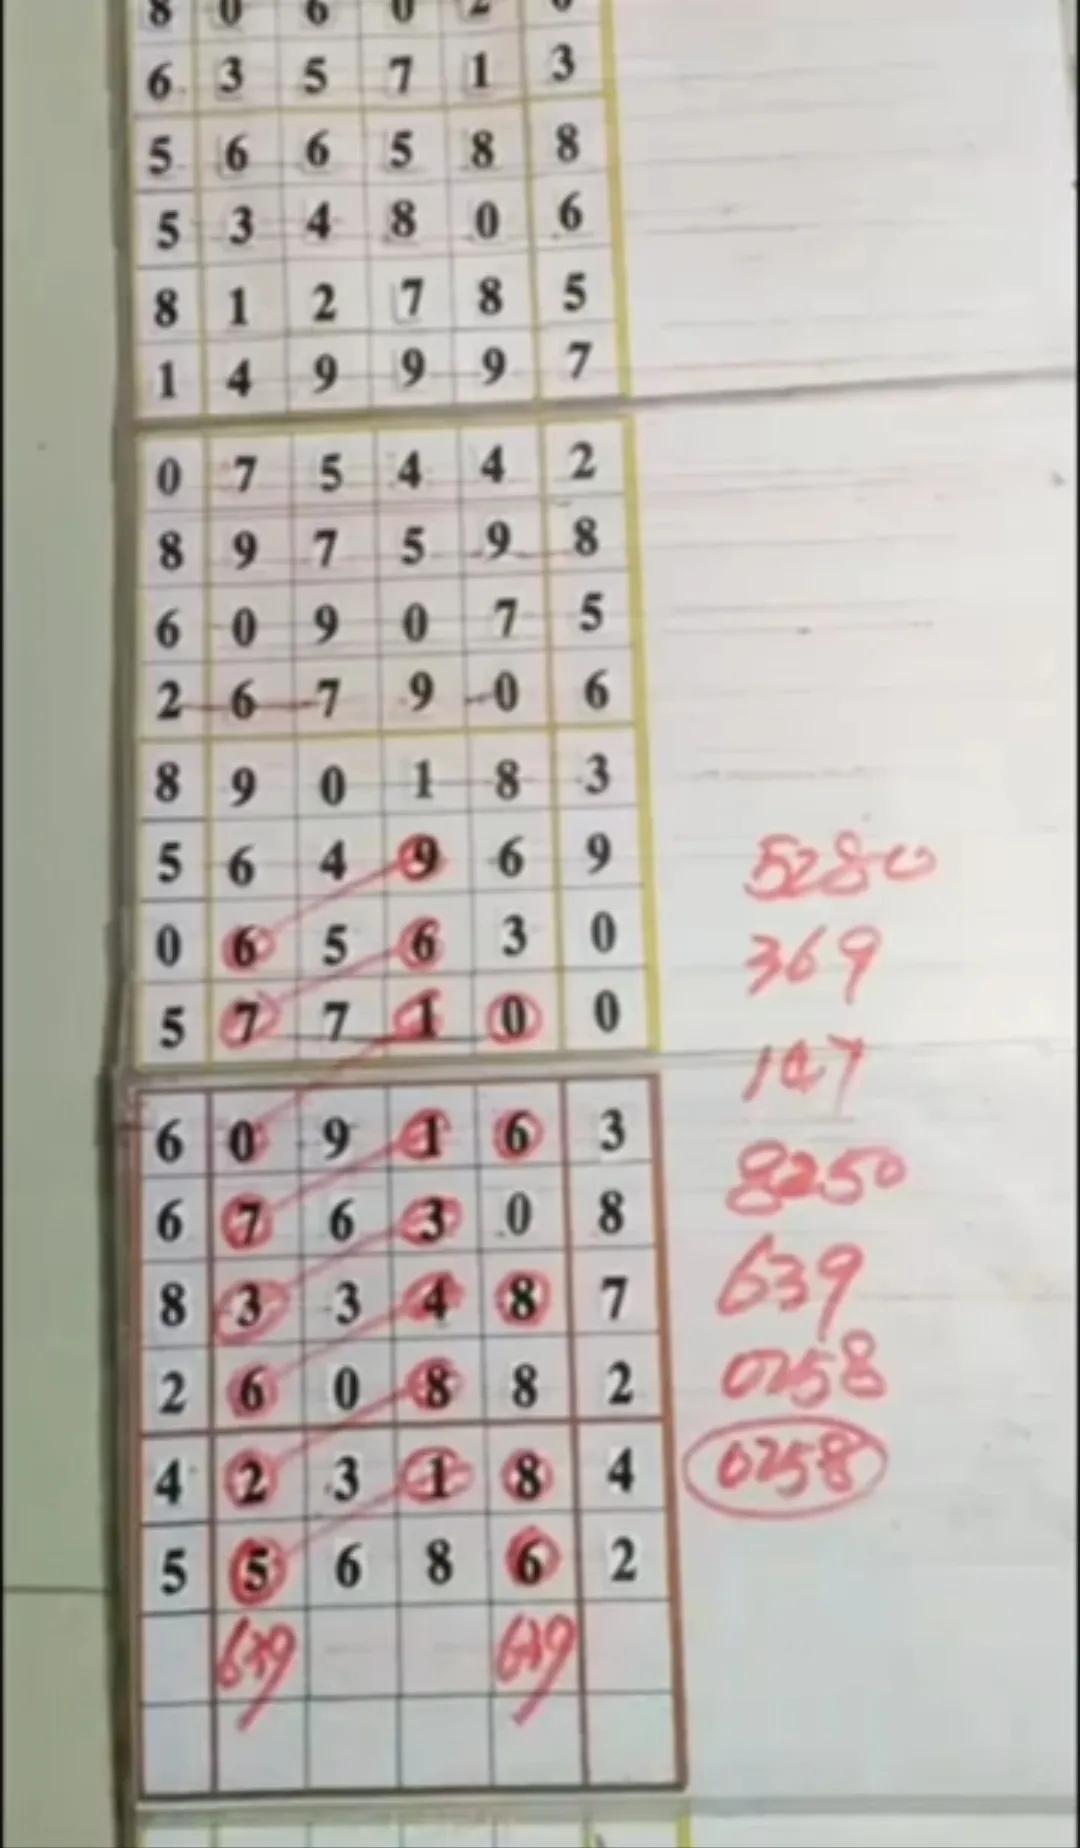 8 0 6 0 2 0
6 3 5 7 1 3
5 6 6 5 8 8
5 3 4 8 0 6
8 1 2 7 8 5
1 4 9 9 9 7
0 7 5 4 4 2
8 9 7 5 9 8
6 0 9 0 7 5
2 6 7 9 0 6
8 9 0 1 8 3
5 6 4 9 6 9 5280
0 6 5 6 3 0 369
5 7 7 1 0 0 147
6 0 9 1 6 3 8250
6 7 6 3 0 8 639
8 3 3 4 8 7 0258
2 6 0 8 8 2
4 2 3 1 8 4 0258
5 5 6 8 6 2
639 639